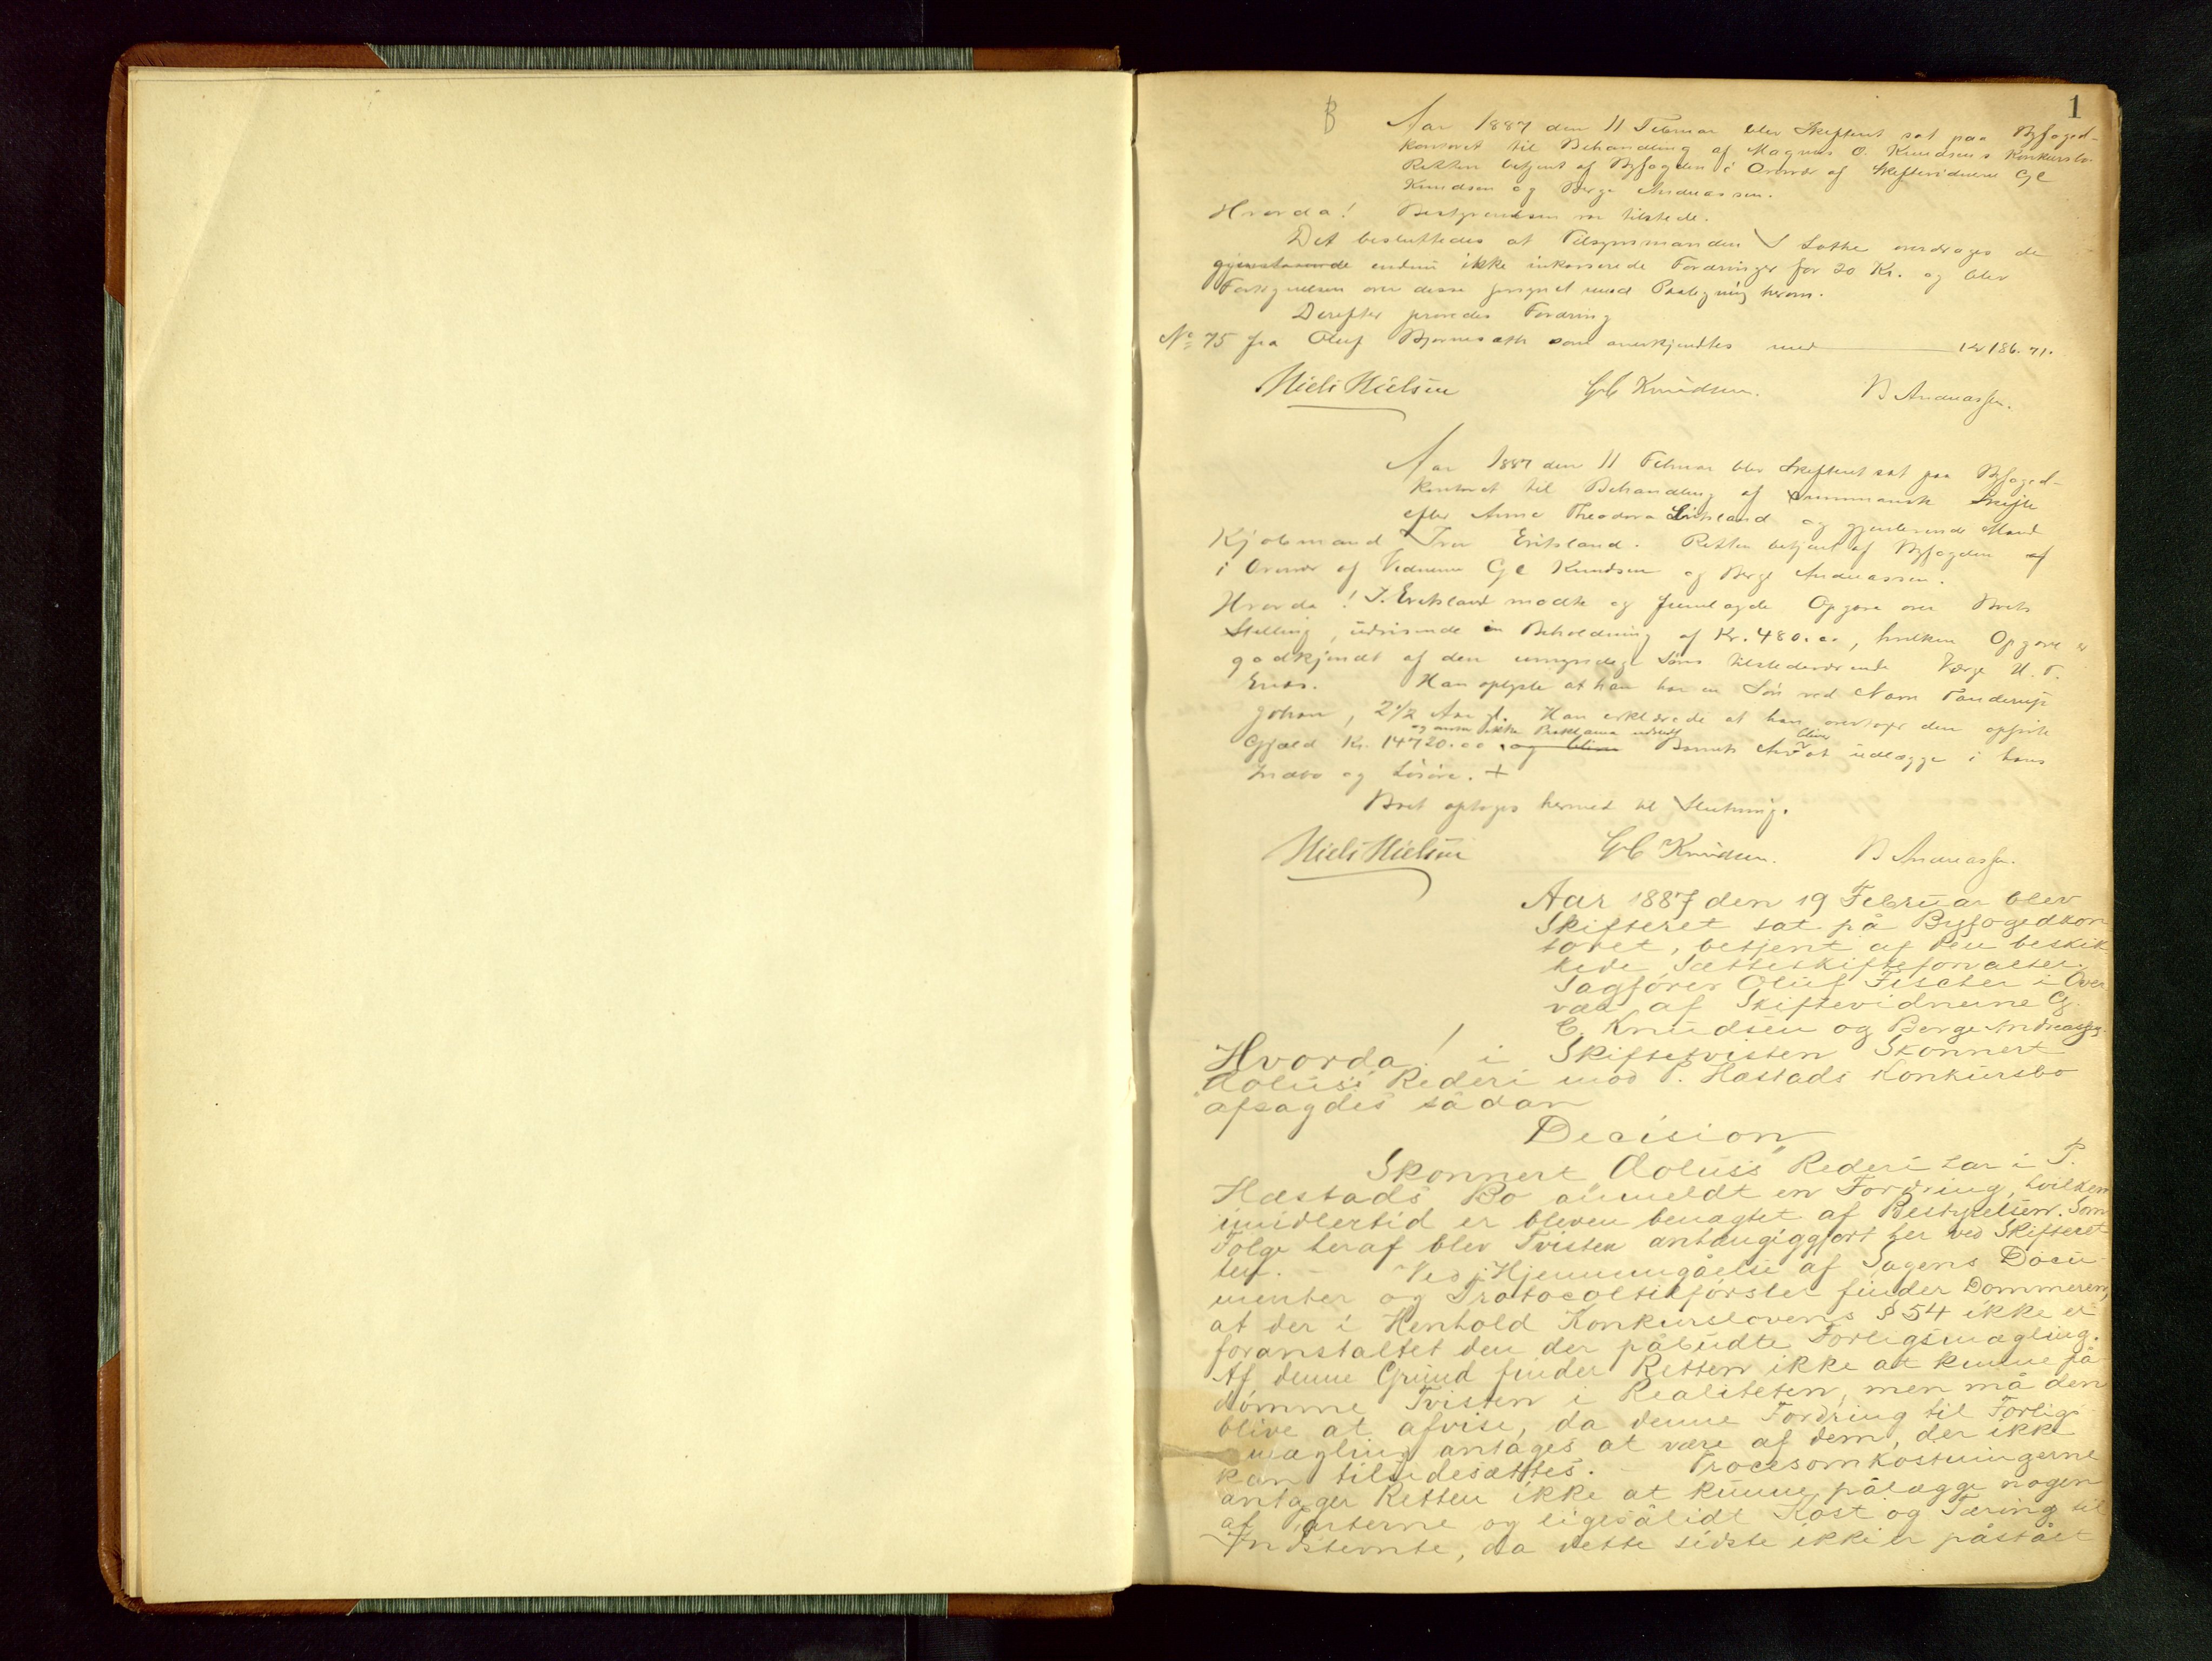 1
Aar 1887 den 11 Februar blev Skifteret sat paa Byfoged-
kontoret til Behandling af Magnus O. Knudsens Konkursbo.
Retten betjent af Byfogden i Overvær af Skiftevidnerne G C
Knudsen og Berge Andreassen.
Hvorda! Bestyrelsen var tilstede.
Det besluttedes at Tilsynsmanden Lothe overdroges de
gjenstaaende endnu ikke inkasserede Fordringer for 20 Kr. og blev
Fortegnelsen over disse forsynet med Paategning herom.
Derefter prøvedes Fordring
No 75 fra Oluf Bjørnesæth som anerkjendtes med 186.71.
Niels Nielsen GC Knudsen. B Andreassen.
Aar 1887 den 11 Februar blev Skifteret sat paa Byfoged-
kontoret til Behandling af summarisk Skifte
efter Anne Theodora Eriksland og gjenlevende Mand
Kjøbmand Iver Eriksland. Retten betjent af Byfogden
i Overvær af Vidnerne G C Knudsen og Berge Andreassen.
Hvorda! I. Eriksland mødte og fremlagde Opgave over Boets
Stilling, udvisende en Beholdning af Kr. 480.00, hvilken Opgave er
godkjendt af den umyndige Søns tilstedeværende Værge
Han oplyste at han har en Søn ved Navn Tanderup
Johan, 2 1/2 Aar gl. Han erklærede at han overtager den opgivne
Gjæld Kr. 14720.00 og bliver Barnets Arv at udlægge i hans
bliver
Indbo og Løsøre. +
Boet optoges hermed til Slutning.
Niels Nielsen GC Knudsen. B Andreassen.
Aar 1887 den 19 Februar blev
Skifteret sat på Byfogedkon
toret, betjent af den beskik
kede Sætteskifteforvalter
Sagfører Oluf Fischer i Over
vær af Skiftevidnerne G.
C. Knudsen og Berge Andreassen.
Hvorda! i Skiftetvisten Skonnert
"Aolus's" Rederi mod P. Hæstads Konkursbo
afsagdes sådan
Decision
Skonnert "Aolus's" Rederi har i P.
Hæstads Bo anmeldt en Fordring, hvilken
imidlertid er bleven benægtet af Bestyrelsen. Som
Følge heraf blev Tvisten anhængiggjort her ved Skifteret
ten. - Ved Gjennemgåelse af Sagens Docu-
menter og Protocoltilførsler finder Dommeren,
at der i Henhold Konkurslovens § 54 ikke er
foranstaltet den der påbudte Forligsmægling.
Af denne Grund finder Retten ikke at kunne på
dømme Tvisten i Realiteten, men må den
blive at afvise, da denne Fordring til Forligs
mægling antages at være af dem, der ikke
kan tilsidesættes. - Procesomkostningerne
antager Retten ikke at kunne pålægge nogen
af Parterne og ligesålidt Kost og Tæring til
Indstevnte, da dette sidste ikke er påstået